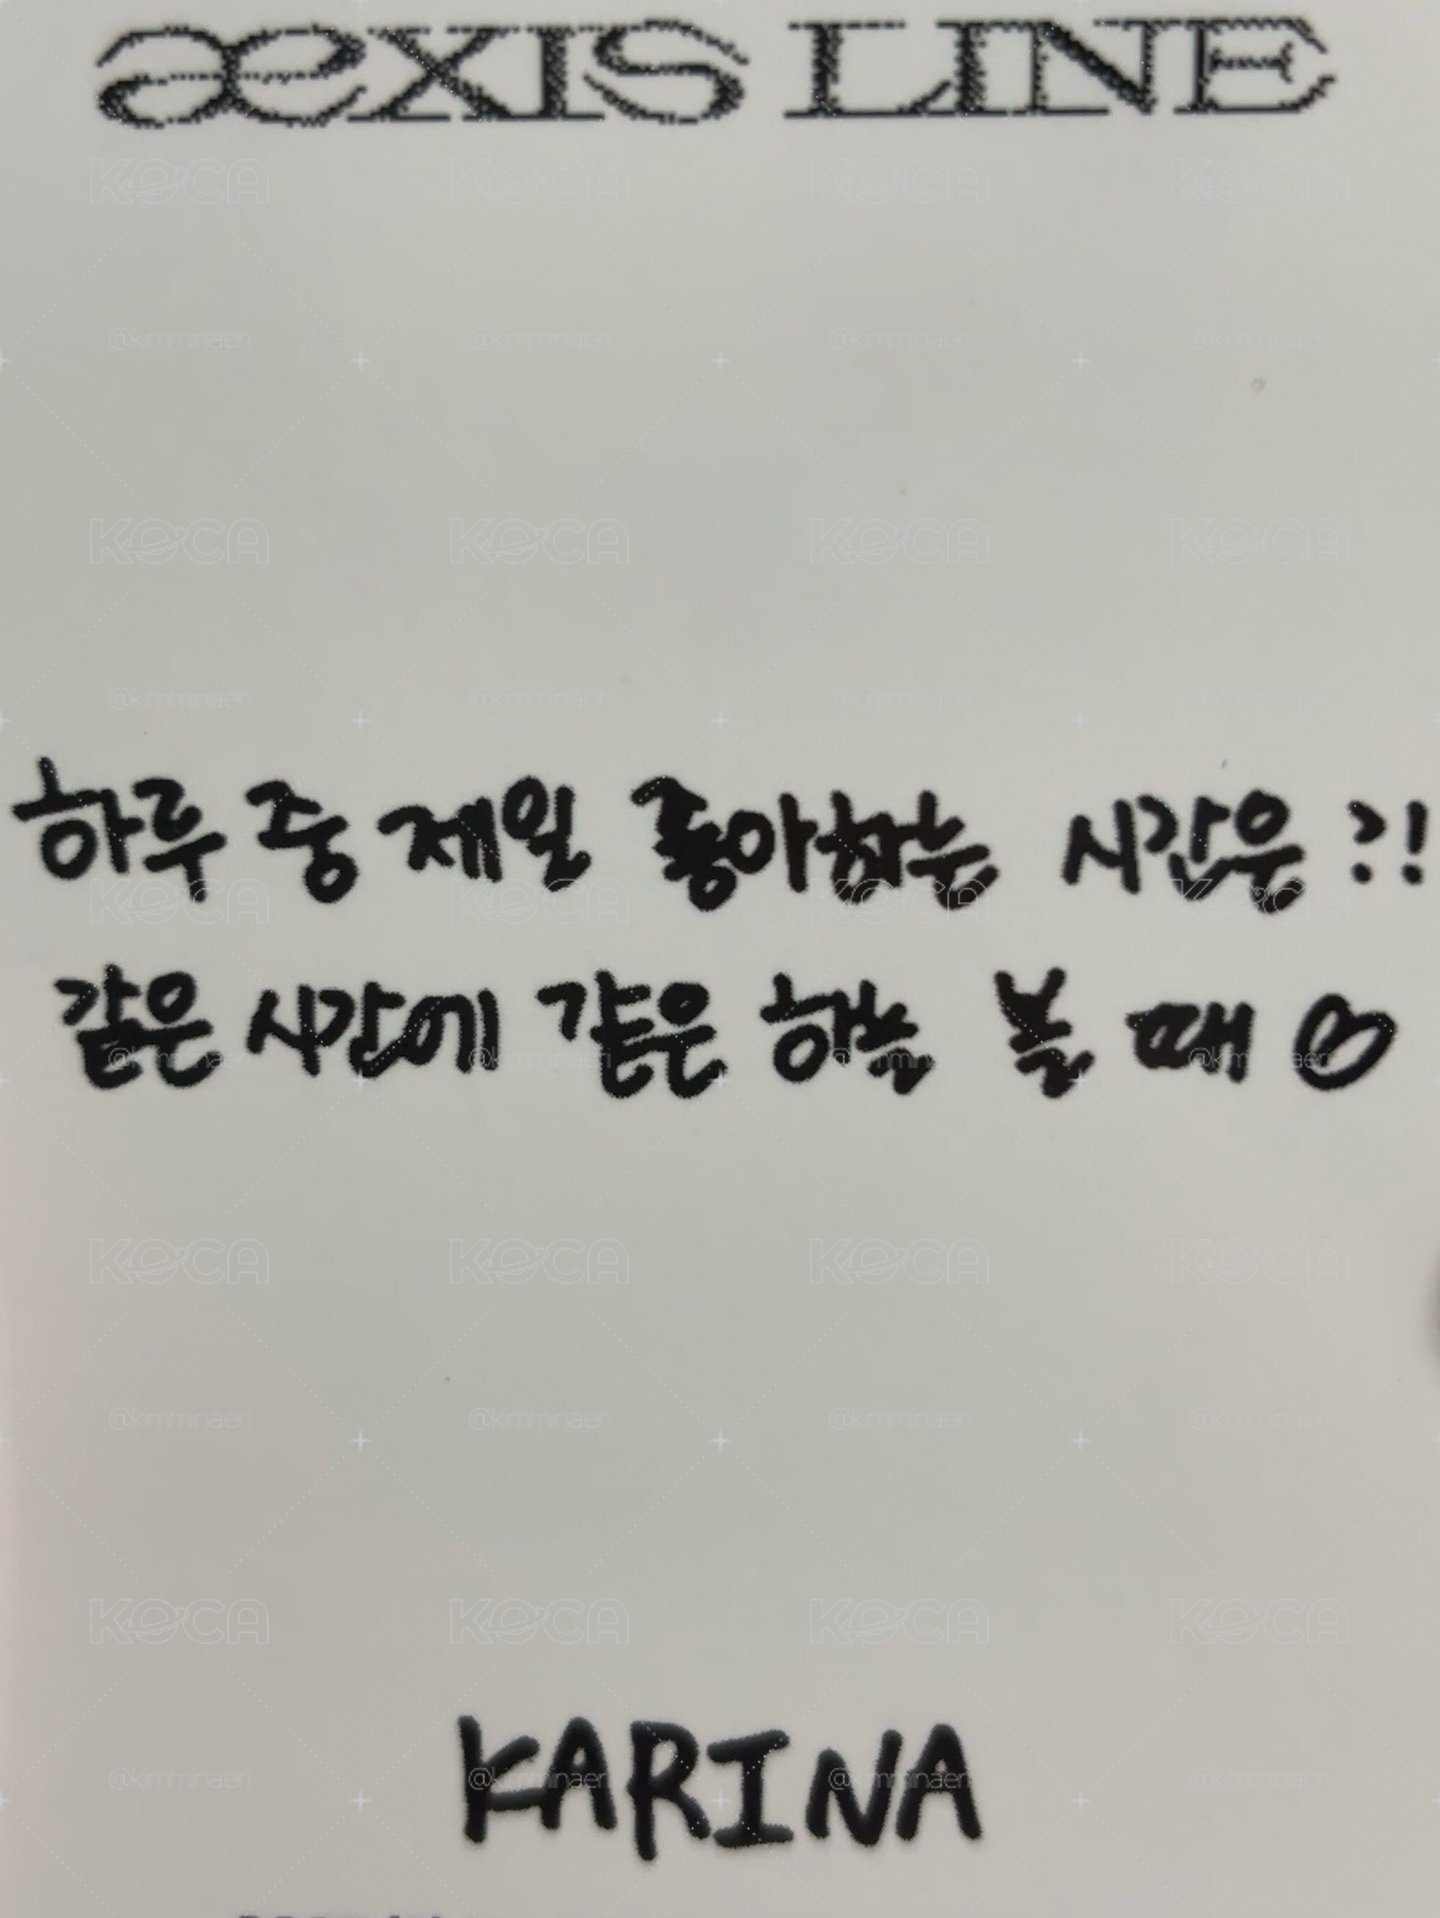 æXIS LINE
하루 중 제일 좋아하는 시간은 ?!
같은 시간에 같은 하늘 볼 때
KARINA
KOCA
@kimminaeri